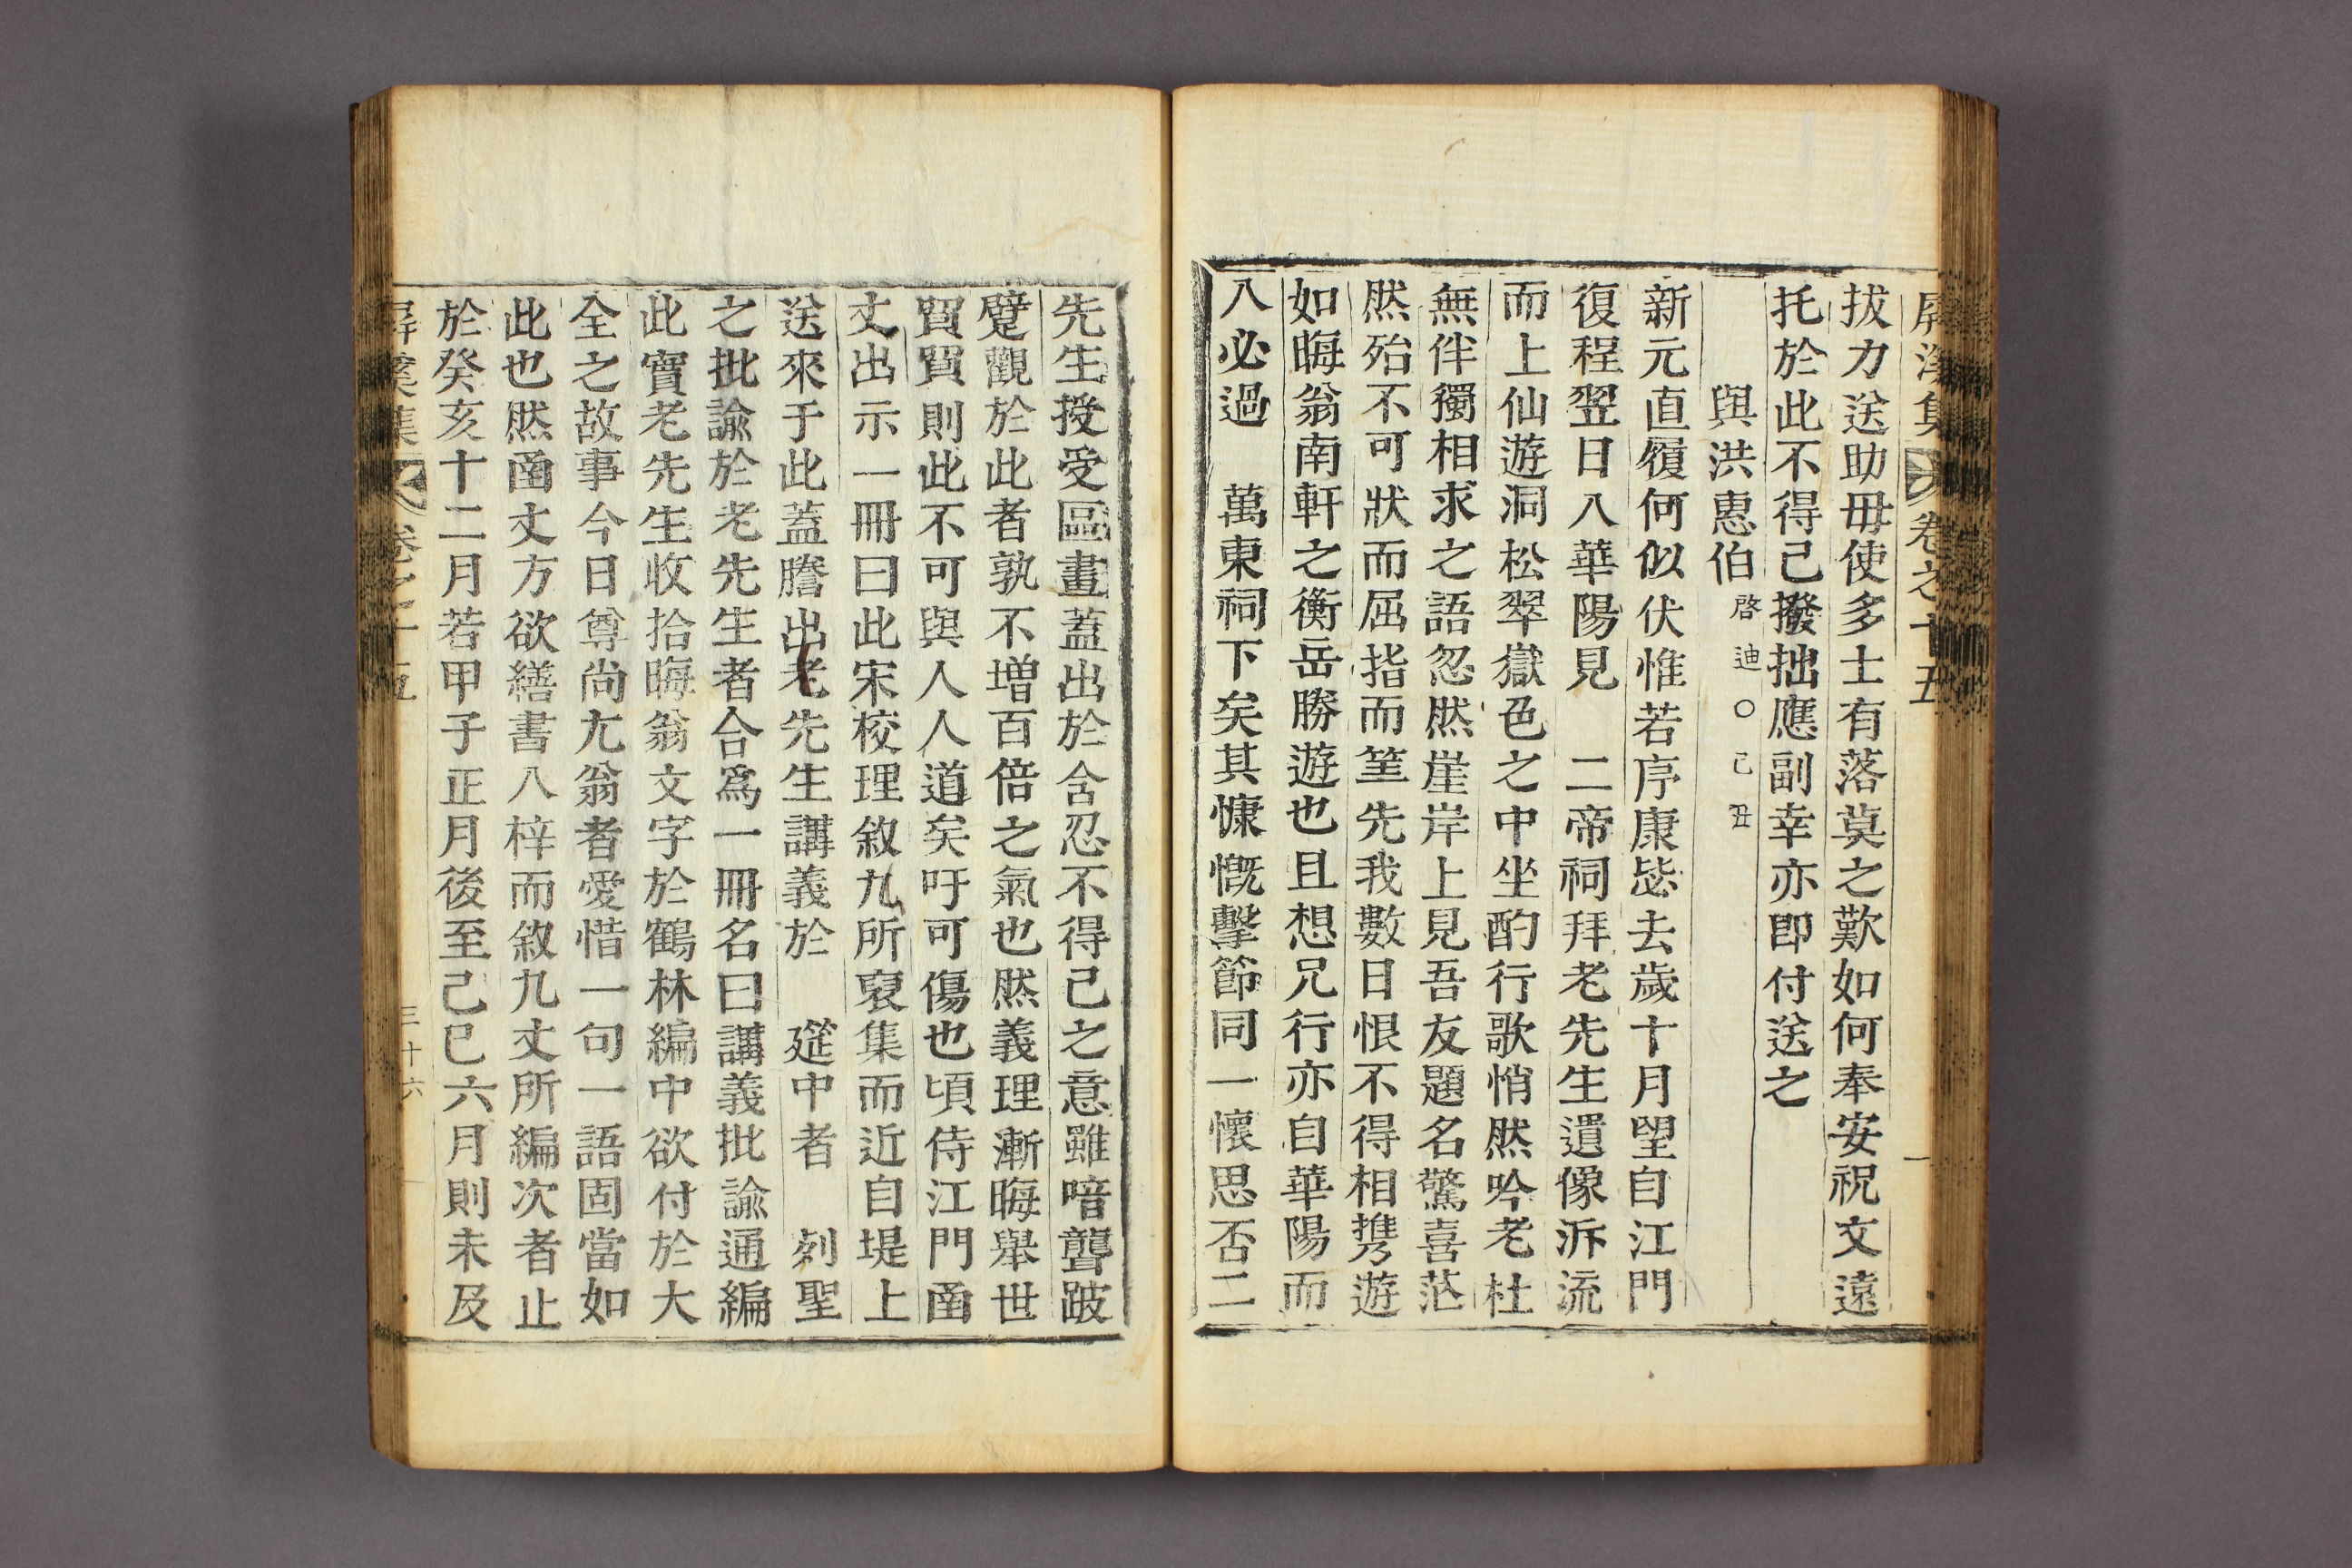 屏溪集 卷之十五
拔力送助毋使多士有落莫之歎如何奉安祝文遠
托於此不得已撥拙應副幸亦即付送之
與洪惠伯啓迪○己丑
新元直履何似伏惟若序康毖去歲十月望自江門
復程翌日入華陽見 二帝祠拜老先生遺像泝流
而上仙遊洞松翠嶽色之中坐酌行歌悄然吟老杜
無伴獨相求之語忽然崖岸上見吾友題名驚喜茫
然殆不可狀而屈指而筳先我數日恨不得相携遊
如晦翁南軒之衡岳勝遊也且想兄行亦自華陽而
入必過 萬東祠下矣其慷慨擊節同一懷思否二
先生授受區畫蓋出於含忍不得已之意雖喑聾跛
躄觀於此者孰不增百倍之氣也然義理漸晦舉世
貿貿則此不可與人人道矣吁可傷也頃侍江門函
丈出示一冊曰此宋校理敘九所裒集而近自堤上
送來于此蓋謄出老先生講義於 筵中者 列聖
之批諭於老先生者合爲一冊名曰講義批諭通編
此實老先生收拾晦翁文字於鶴林編中欲付於大
全之故事今日尊尚尤翁者愛惜一句一語固當如
此也然函丈方欲繕書入梓而敘九丈所編次者止
於癸亥十二月若甲子正月後至己巳六月則未及
屏溪集 卷之十五 三十六